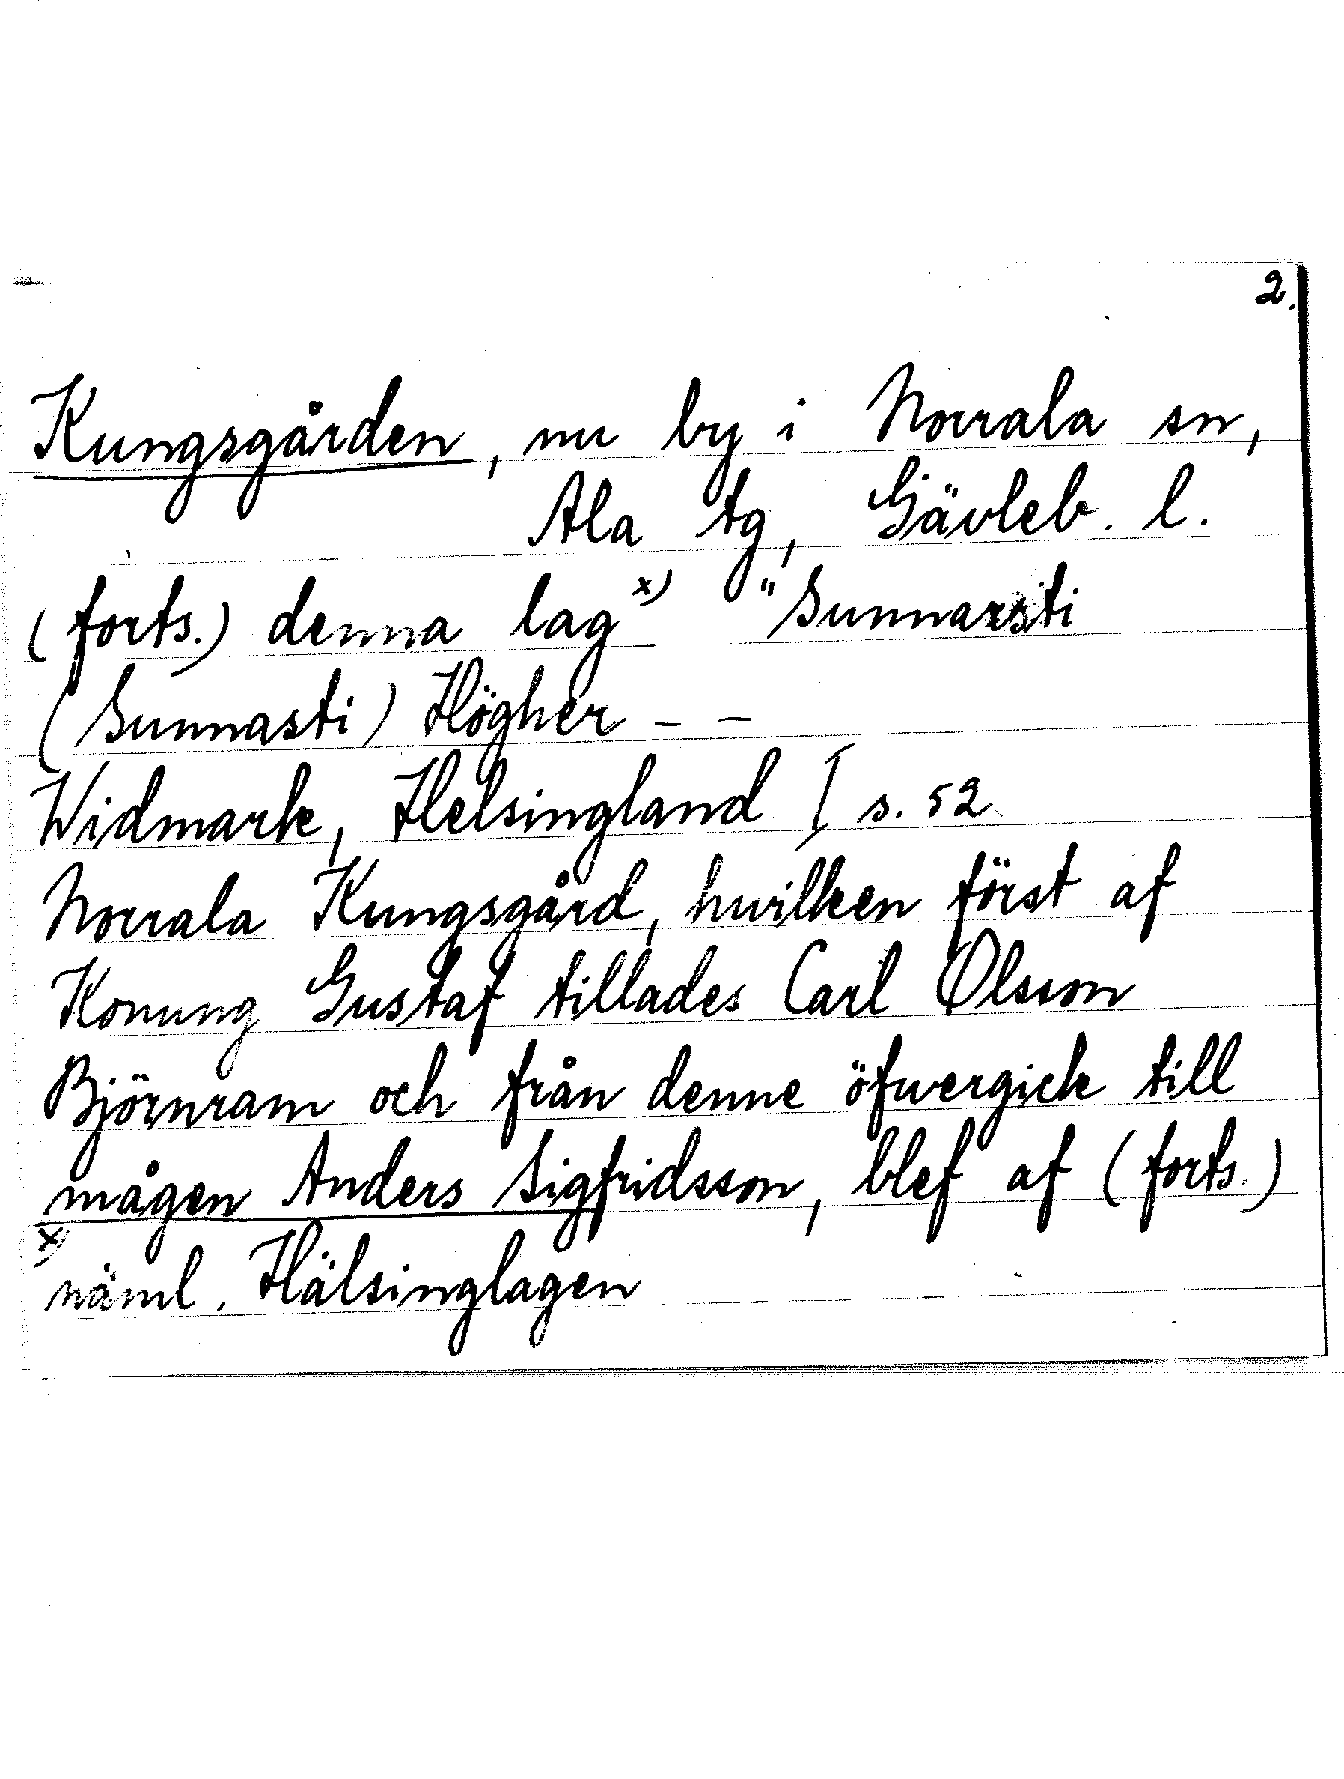 2.
Kungsgården, nu by i Norrala sn,
Ala tg, Gävleb. l.
(forts.) denna lag x) "Sunnarsti
(Sunnasti) Högher - -
Widmark, Helsingland I s. 52
Norrala Kungsgård, hvilken först af
Konung Gustaf tillades Carl Olsson
Björnram och från denne öfvergick till
mågen Anders Sigfridsson, blef af (forts.)
x) näml. Hälsinglagen